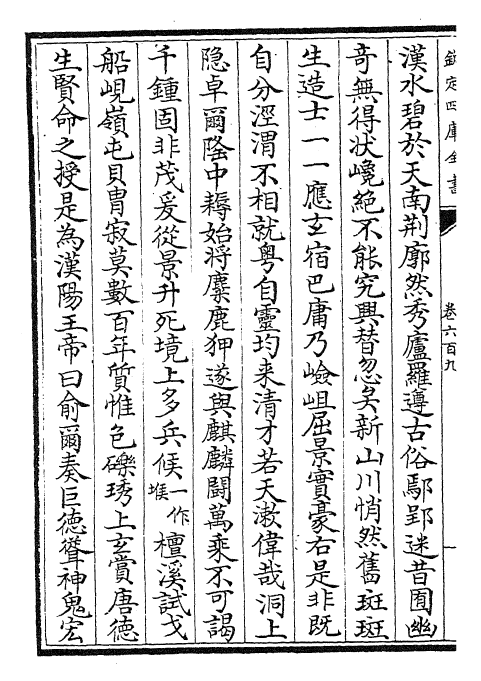 欽定四庫全書
卷六百九
漢水碧於天南荆廓然秀廬羅遵古俗鄢郢迷昔囿幽
奇無得状巉絶不能究興替忽矣新山川悄然舊斑斑
生造士一一應玄宿巴庸乃嶮岨屈景實豪右是非既
自分涇渭不相就粤自靈均来清才若天漱偉哉洞上
隐卓爾隆中耨始将麋鹿狎遂與麒麟鬭萬乘不可謁
千鍾固非茂爰從景升死境上多兵候一作堠檀溪試戈
船峴嶺屯貝胄寂莫數百年質惟包礫琇上玄賞唐德
生賢命之授是為漢陽王帝曰俞爾奏巨德聳神鬼宏